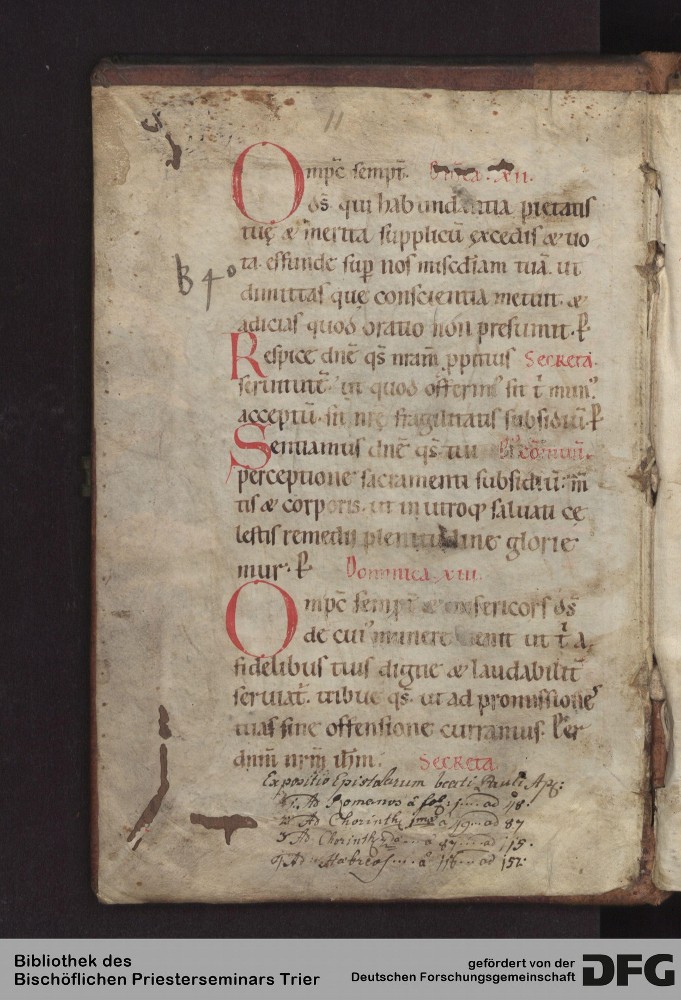 11
Omp̄c sempt̄. Dn̄ica. XII.
ds̄. qui habundantia pietatis
tuę & merita supplicū excedis & uo
ta. effunde sup nos misc̄diam tuā. ut
B 40
dimittas quę conscientia metuit. &
adicias quod oratio non presumit. P
Respice dn̄e qs̄ nram̄ ppitius Secreta.
seruitutē. ut quod offerim' sit t̄ mun'
acceptū. sit nrę fragilitatis subsidiū. P
Sentiamus dn̄e qs̄ tui
perceptione sacramenti subsidiū. m̄
tis & corporis. ut in utroq; saluati cę
lestis remedii plenitudine glorie
mur. P Dominica. XIII.
Omp̄c semp̄ & misericors ds̄
de cui' munere uenit ut t̄ a
fidelibus tuis digne & laudabilit̄
seruiat̄. tribue qs̄. ut ad promissione'
tuas sine offensione curramus. Per
dn̄m nr̄m ih̄m. Secreta
Expositio Epistolarum beati Pauli Ap:
1. Ad Romanos à fol. 1 ... ad 48.
2. Ad Chorinth. 1mā à 49 ... ad 87
3. Ad Chorinth. 2dā ... à 87 ... ad 115.
Ad Hebreos ... à 116 ... ad 157.
Bibliothek des
Bischöflichen Priesterseminars Trier
gefördert von der
Deutschen Forschungsgemeinschaft DFG